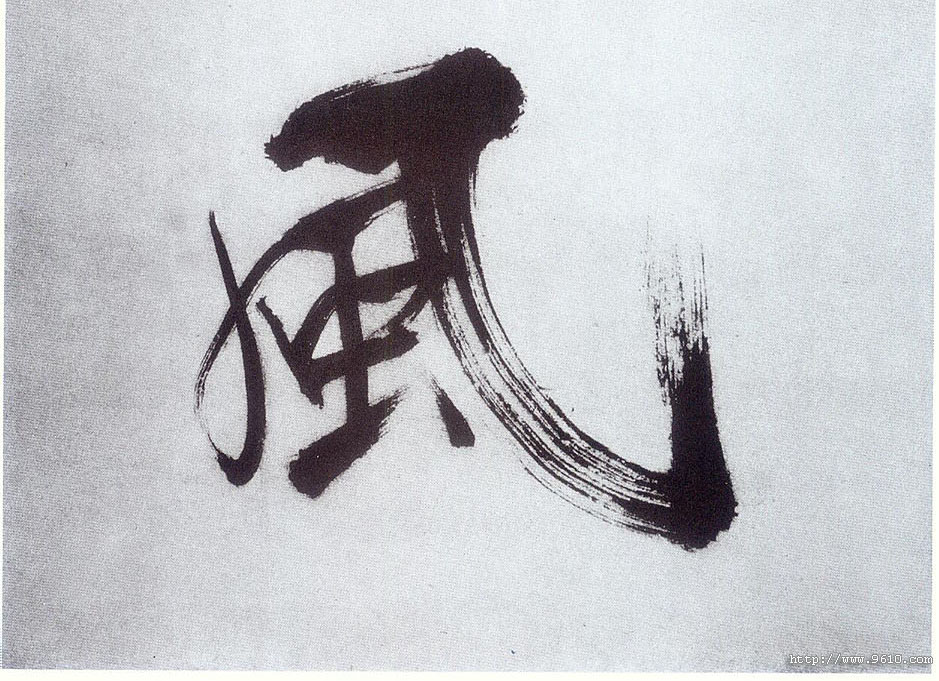 風
http://www.9610.com